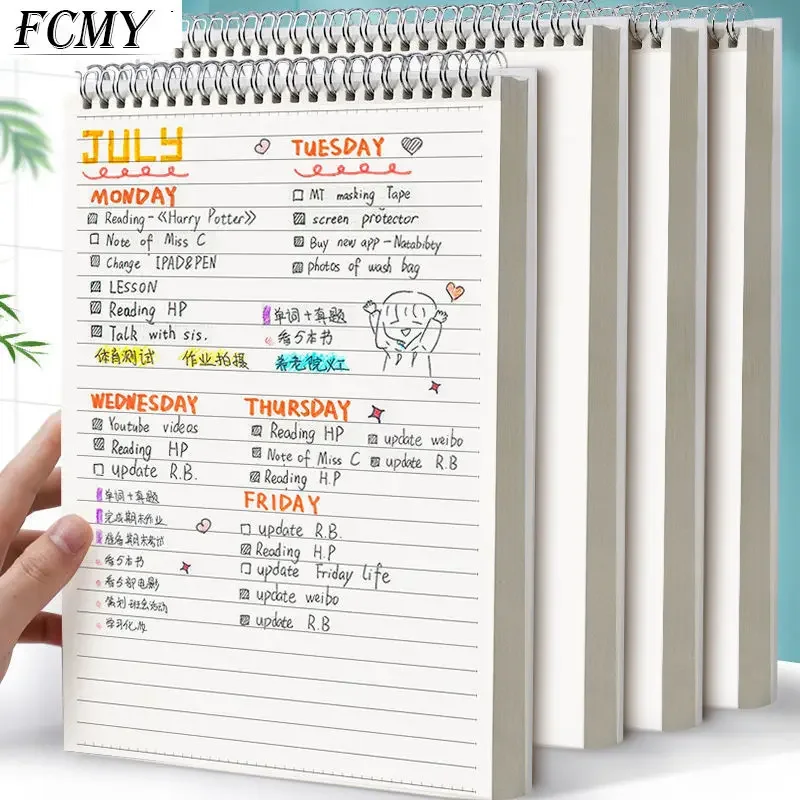 FCMY
JULY
MONDAY
Reading-《Harry Potter》
Note of Miss C
Change IPAD&PEN
LESSON
Reading HP
Talk with sis.
体育测试 作业拍摄 养老院义工
TUESDAY
MT masking Tape
screen protector
Buy new app-Natabibty
photos of wash bag
单词+真题
看5本书
WEDNESDAY
Youtube videos
Reading HP
update R.B.
单词+真题
完成期末作业
准备期末考试
看5本书
看5部电影
策划班会活动
学习化妆
THURSDAY
Reading HP
Note of Miss C
Reading H.P
update weibo
update R.B
FRIDAY
update R.B.
Reading H.P
update Friday life
update weibo
update R.B